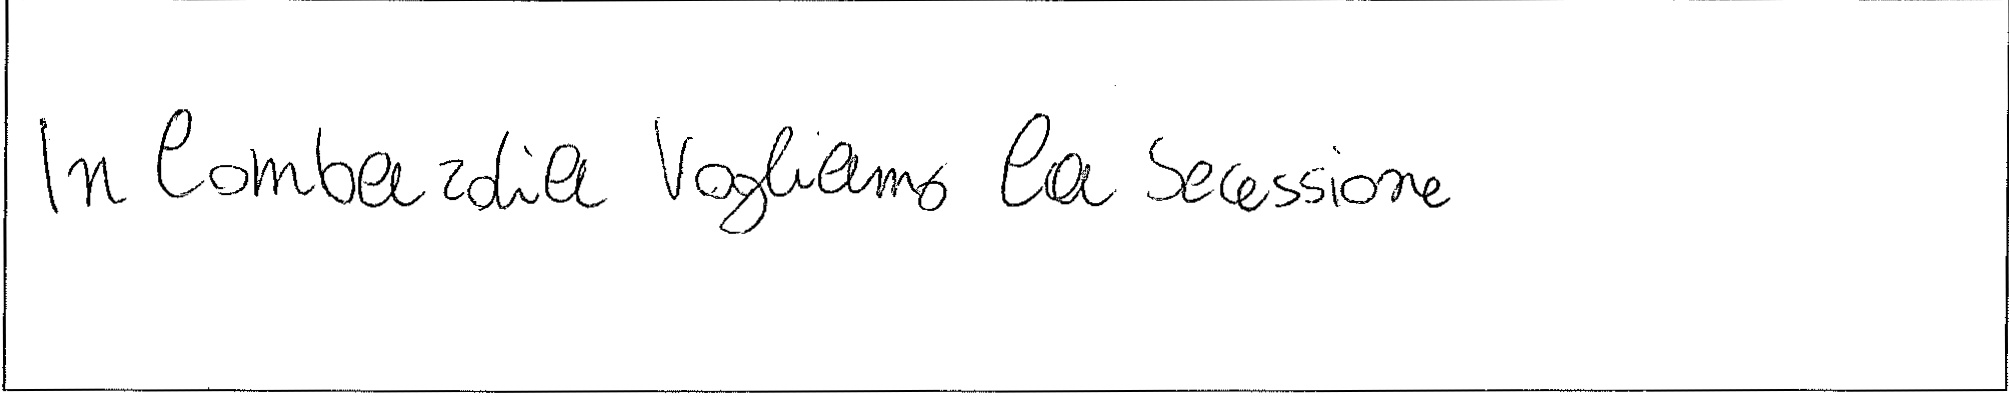 In Lombardia Vogliamo la Secessione